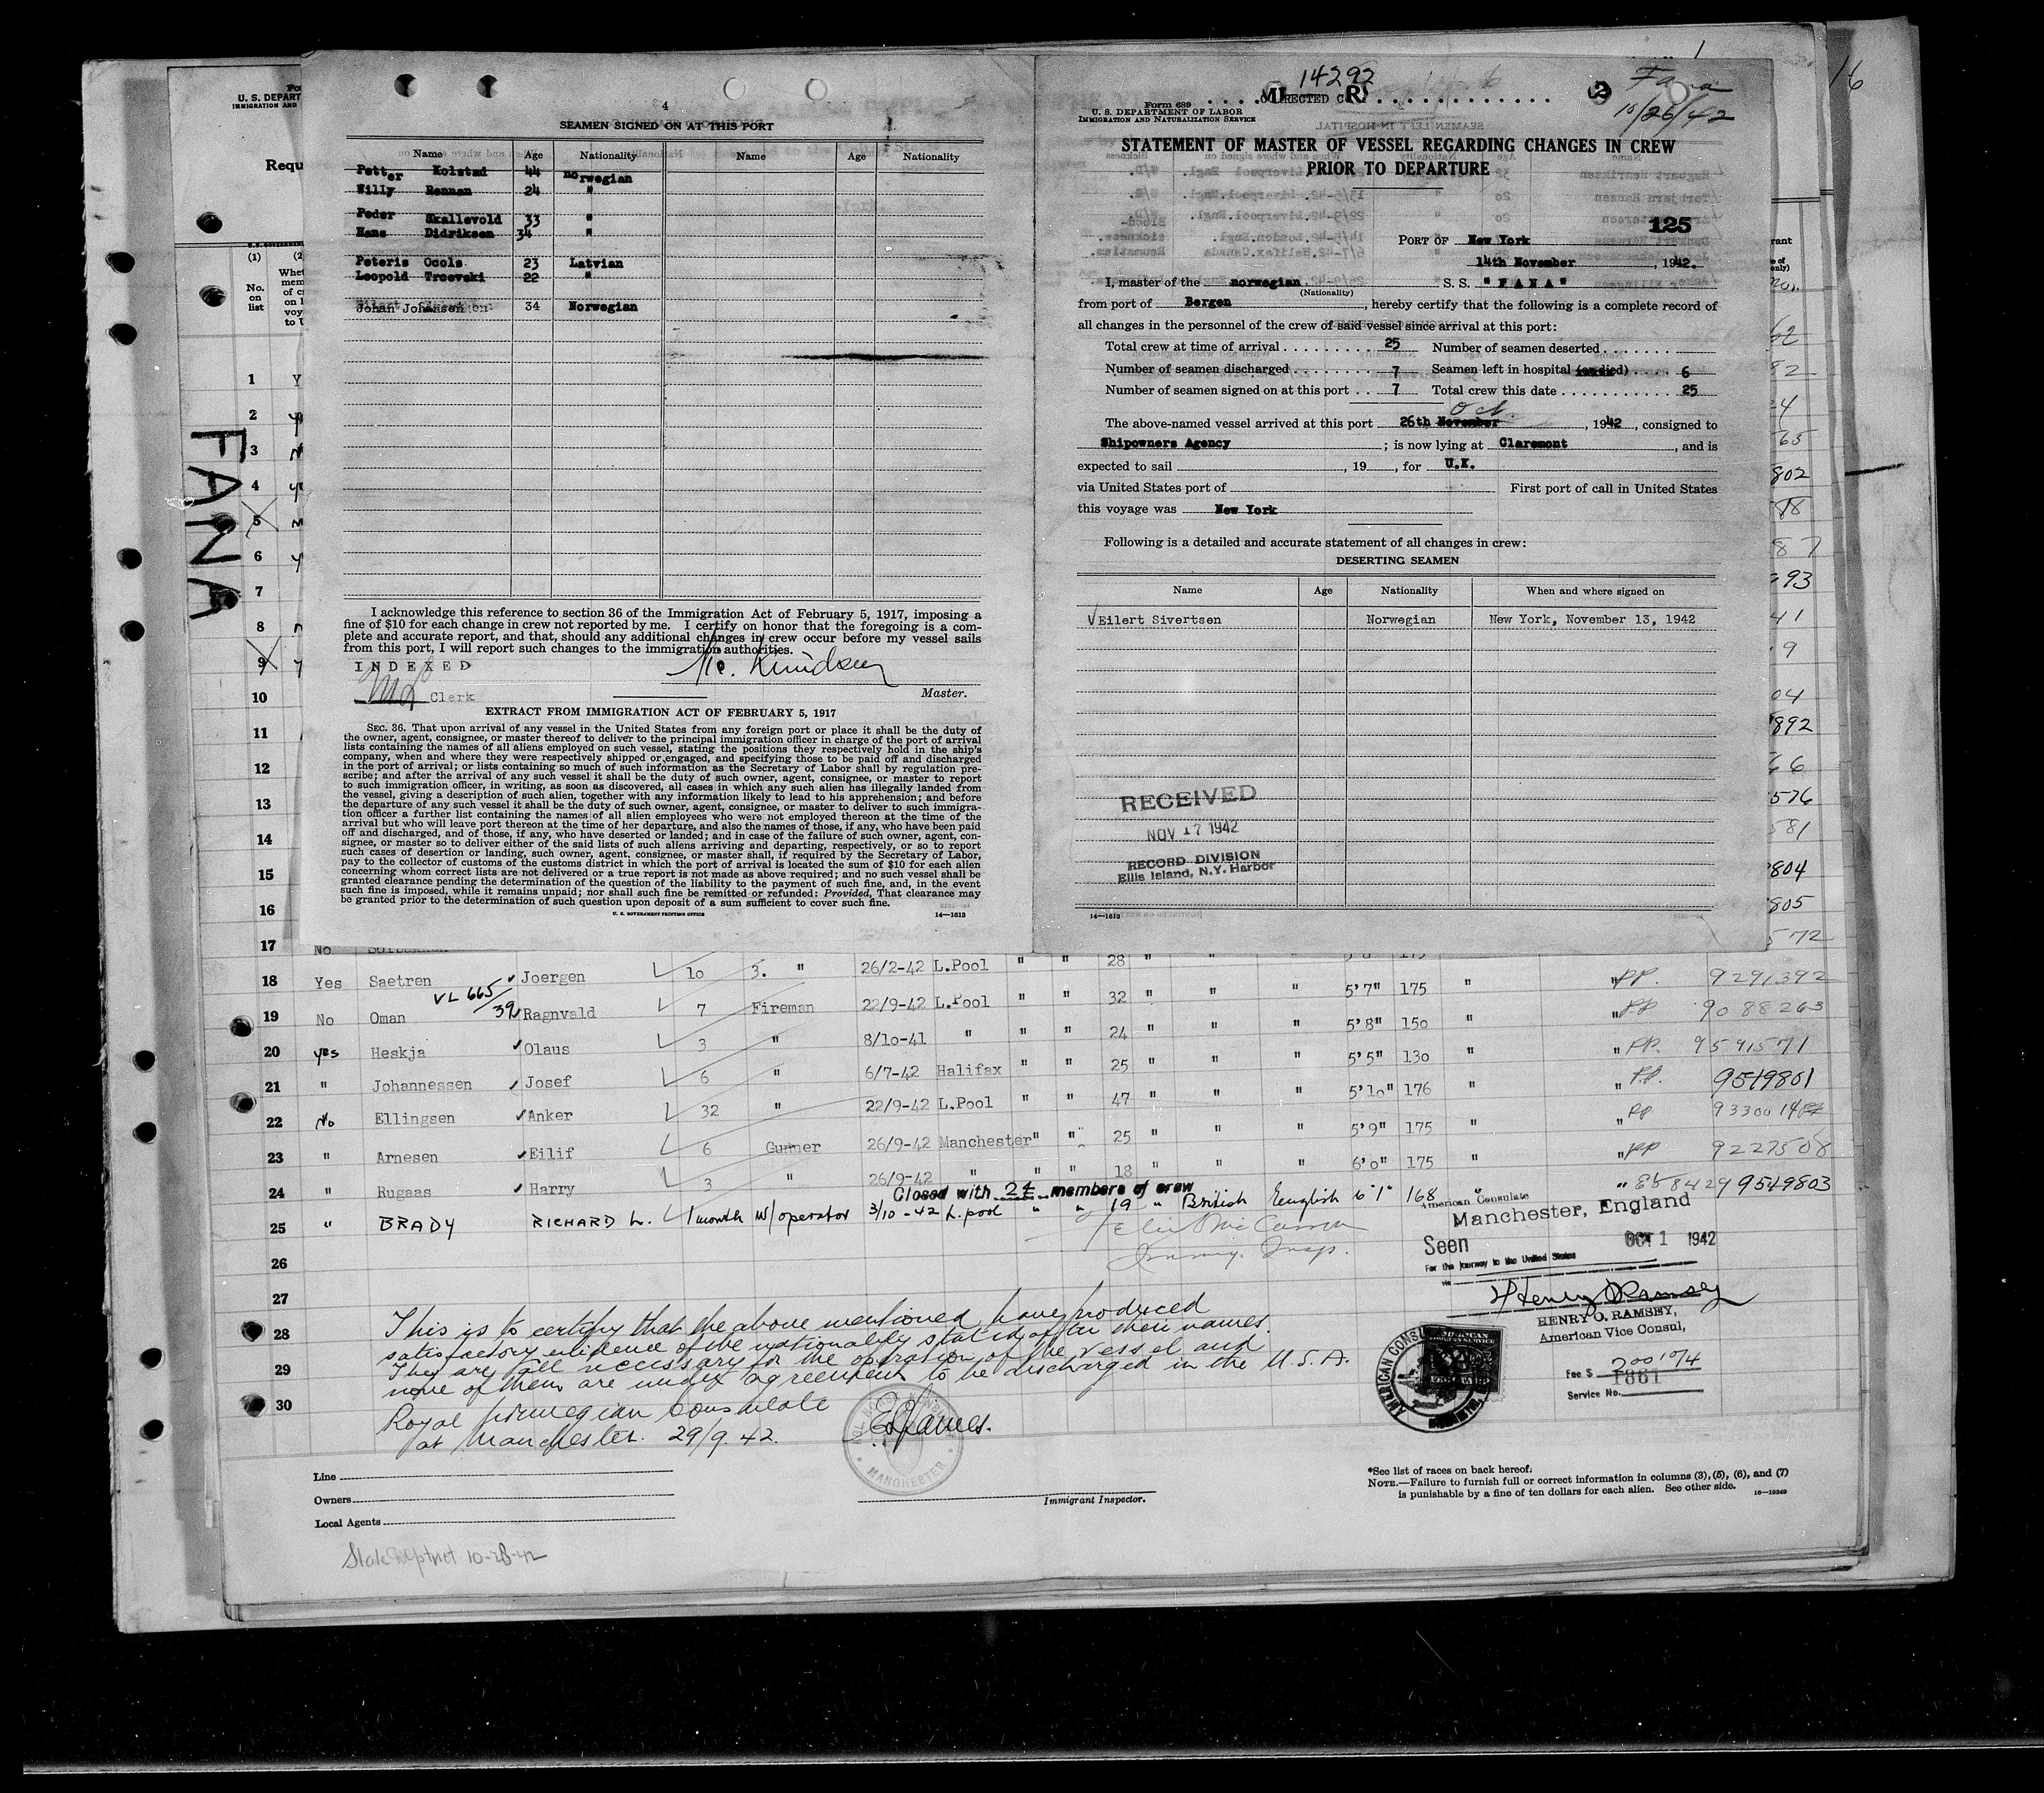 4
SEAMEN SIGNED ON AT THIS PORT
Name Age Nationality Name Age Nationality
Petter Kolstad 44 norwegian
Willy Rennan 24 "
Peder Skallevold 33 "
Hans Didriksen 34 "
Peteris Ocols 23 Latvian
Leopold 22 "
Johan Johansen 34 Norwegian
I acknowledge this reference to section 36 of the Immigration Act of February 5, 1917, imposing a
fine of $10 for each change in crew not reported by me. I certify on honor that the foregoing is a com-
plete and accurate report, and that, should any additional changes in crew occur before my vessel sails
from this port, I will report such changes to the immigration authorities.
INDEXED
Clerk
Knudsen
Master.
EXTRACT FROM IMMIGRATION ACT OF FEBRUARY 5, 1917
SEC. 36. That upon arrival of any vessel in the United States from any foreign port or place it shall be the duty of
the owner, agent, consignee, or master thereof to deliver to the principal immigration officer in charge of the port of arrival
lists containing the names of all aliens employed on such vessel, stating the positions they respectively hold in the ship's
company, when and where they were respectively shipped or engaged, and specifying those to be paid off and discharged
in the port of arrival; or lists containing so much of such information as the Secretary of Labor shall by regulation pre-
scribe; and after the arrival of any such vessel it shall be the duty of such owner, agent, consignee, or master to report
to such immigration officer, in writing, as soon as discovered, all cases in which any such alien has illegally landed from
the vessel, giving a description of such alien, together with any information likely to lead to his apprehension; and before
the departure of any such vessel it shall be the duty of such owner, agent, consignee, or master to deliver to such immigra-
tion officer a further list containing the names of all alien employees who were not employed thereon at the time of the
arrival but who will leave port thereon at the time of her departure, and also the names of those, if any, who have been paid
off and discharged, and of those, if any, who have deserted or landed; and in case of the failure of such owner, agent, con-
signee, or master so to deliver either of the said lists of such aliens arriving and departing, respectively, or so to report
such cases of desertion or landing, such owner, agent, consignee, or master shall, if required by the Secretary of Labor,
pay to the collector of customs of the customs district in which the port of arrival is located the sum of $10 for each alien
concerning whom correct lists are not delivered or a true report is not made as above required; and no such vessel shall be
granted clearance pending the determination of the question of the liability to the payment of such fine, and, in the event
such fine is imposed, while it remains unpaid; nor shall such fine be remitted or refunded: Provided, That clearance may
be granted prior to the determination of such question upon deposit of a sum sufficient to cover such fine.
U. S. GOVERNMENT PRINTING OFFICE 14—1613
14292
Fana
10/26/42
Form 689
U. S. DEPARTMENT OF LABOR
IMMIGRATION AND NATURALIZATION SERVICE
STATEMENT OF MASTER OF VESSEL REGARDING CHANGES IN CREW
PRIOR TO DEPARTURE
125
PORT OF New York
14th November, 1942.
I, master of the norwegian S. S. "FANA"
(Nationality)
from port of Bergen, hereby certify that the following is a complete record of
all changes in the personnel of the crew of said vessel since arrival at this port:
Total crew at time of arrival 25 Number of seamen deserted
Number of seamen discharged 7 Seamen left in hospital (or died) 6
Number of seamen signed on at this port 7 Total crew this date 25
Oct.
The above-named vessel arrived at this port 26th November, 1942, consigned to
Shipowners Agency; is now lying at Claremont, and is
expected to sail , 19 , for U.K.
via United States port of First port of call in United States
this voyage was New York
Following is a detailed and accurate statement of all changes in crew:
DESERTING SEAMEN
Name Age Nationality When and where signed on
Eilert Sivertsen Norwegian New York, November 13, 1942
RECEIVED
NOV 17 1942
RECORD DIVISION
Ellis Island, N.Y. Harbor
14—1613
FANA
18 Yes Saetren Joergen 10 3. " 26/2-42 L.Pool " " 28 " " " 5'7" 175 " " PP. 9291392
VL 665/39
19 No Oman Ragnvald 7 Fireman 22/9-42 L.Pool " " 32 " " " 5'8" 150 " " PP 9088263
20 yes Heskja Olaus 3 " 8/10-41 " " " 24 " " " 5'5" 130 " " PP. 9591571
21 " Johannessen Josef 6 " 6/7-42 Halifax " " 25 " " " 5'10" 176 " " P.P. 9519801
22 No Ellingsen Anker 32 " 22/9-42 L.Pool " " 47 " " " 5'9" 175 " " PP 9330014
23 " Arnesen Eilif 6 Gunner 26/9-42 Manchester " " 25 " " " 6'0" 175 " " PP 9227508
24 " Rugaas Harry 3 " 26/9-42 " " " 18 " " 9519803
Closed with 24 members of crew
25 " BRADY RICHARD L. 1 month W/operator 3/10-42 L.pool " " 19 " British English 6'1" 168
26
27
28
29
30
Immig. Insp.
American Consulate
Manchester, England
Seen OCT 1 1942
For the journey to the United States
via
Henry O Ramsey
HENRY O. RAMSEY,
American Vice Consul,
Fee $ 200
Service No. 1861
This is to certify that the above mentioned have produced
satisfactory evidence of the nationality stated after their names.
They are all necessary for the operation of the vessel and
none of them are under agreement to be discharged in the U.S.A.
Royal Norwegian Consulate
at Manchester. 29/9.42.
E. James.
MANCHESTER
Line
Owners
Local Agents
Immigrant Inspector.
*See list of races on back hereof.
NOTE.—Failure to furnish full or correct information in columns (3), (5), (6), and (7)
is punishable by a fine of ten dollars for each alien. See other side. 16—19349
10-28-42